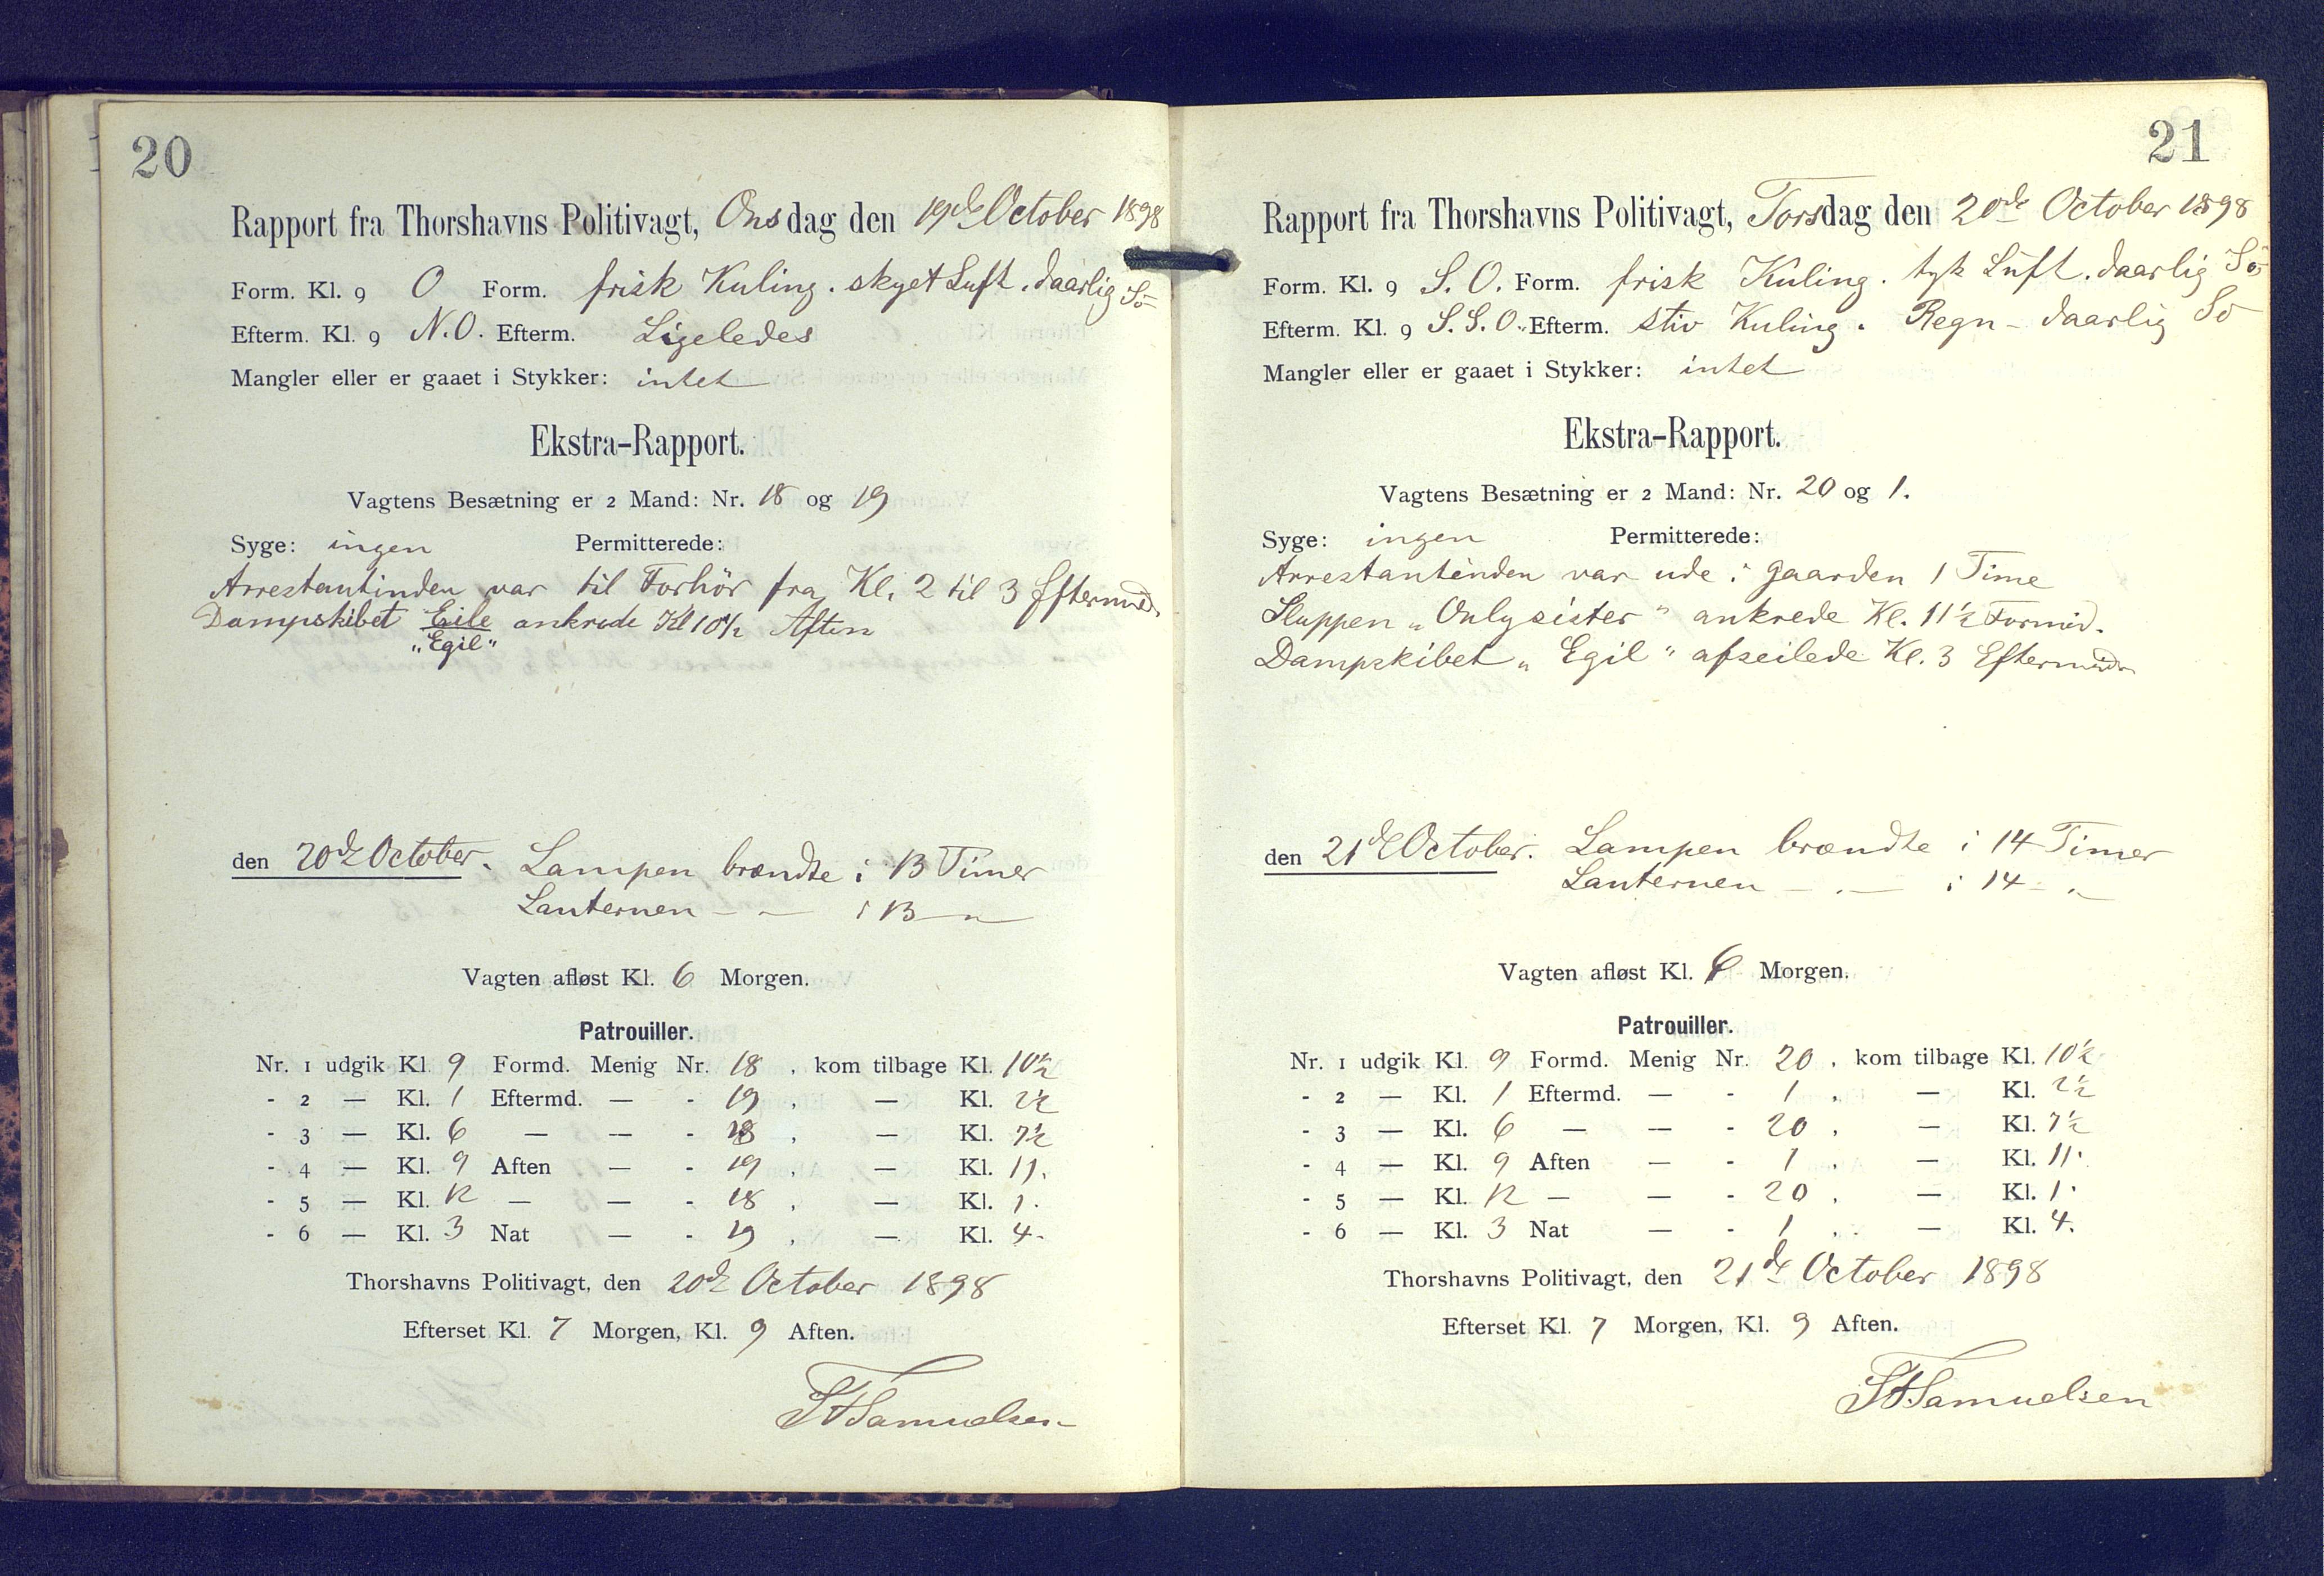 20
Rapport fra Thorshavns Politivagt, Onsdag den 19de October 1898
Form. Kl. 9 O Form. frisk Kuling. skyet Luft. daarlig Sö
Efterm. Kl. 9 N.O. Efterm. Ligeledes
Mangler eller er gaaet i Stykker: intet
Ekstra-Rapport.
Vagtens Besætning er 2 Mand: Nr. 18 og 19
Syge: ingen Permitterede:
Arrestantinden var til Forhör fra Kl. 2 til 3 Eftermid.
Dampskibet Eile ankrede Kl 10½ Aften
"Egil"
den 20de October. Lampen brændte i 13 Timer
Lanternen - - i 13 - "
Vagten afløst Kl. 6 Morgen.
Patrouiller.
Nr. 1 udgik Kl. 9 Formd. Menig Nr. 18, kom tilbage Kl. 10½
- 2 — Kl. 1 Eftermd. — - 19, — Kl. 2½
- 3 — Kl. 6 — — - 18, — Kl. 7½
- 4 — Kl. 9 Aften — - 19, — Kl. 11.
- 5 — Kl. 12 — — - 18, — Kl. 1.
- 6 — Kl. 3 Nat — - 19, — Kl. 4.
Thorshavns Politivagt, den 20de October 1898
Efterset Kl. 7 Morgen, Kl. 9 Aften.
Samuelsen
21
Rapport fra Thorshavns Politivagt, Torsdag den 20de October 1898
Form. Kl. 9 S.O. Form. frisk Kuling. tyk Luft. daarlig Sö
Efterm. Kl. 9 S.S.O. Efterm. Stiv Kuling. Regn - daarlig Sö
Mangler eller er gaaet i Stykker: intet
Ekstra-Rapport.
Vagtens Besætning er 2 Mand: Nr. 20 og 1.
Syge: ingen Permitterede:
Arrestantinden var ude i Gaarden 1 Time
Sluppen „Onlysister" ankrede Kl. 11½ Formid.
Dampskibet „Egil" afseilede Kl. 3 Eftermid.
den 21de October. Lampen brændte i 14 Timer
Lanternen - - i 14 - "
Vagten afløst Kl. 6 Morgen.
Patrouiller.
Nr. 1 udgik Kl. 9 Formd. Menig Nr. 20, kom tilbage Kl. 10½
- 2 — Kl. 1 Eftermd. — - 1, — Kl. 2½
- 3 — Kl. 6 — — - 20, — Kl. 7½
- 4 — Kl. 9 Aften — - 1, — Kl. 11.
- 5 — Kl. 12 — — - 20, — Kl. 1.
- 6 — Kl. 3 Nat — - 1, — Kl. 4.
Thorshavns Politivagt, den 21de October 1898
Efterset Kl. 7 Morgen, Kl. 9 Aften.
Samuelsen